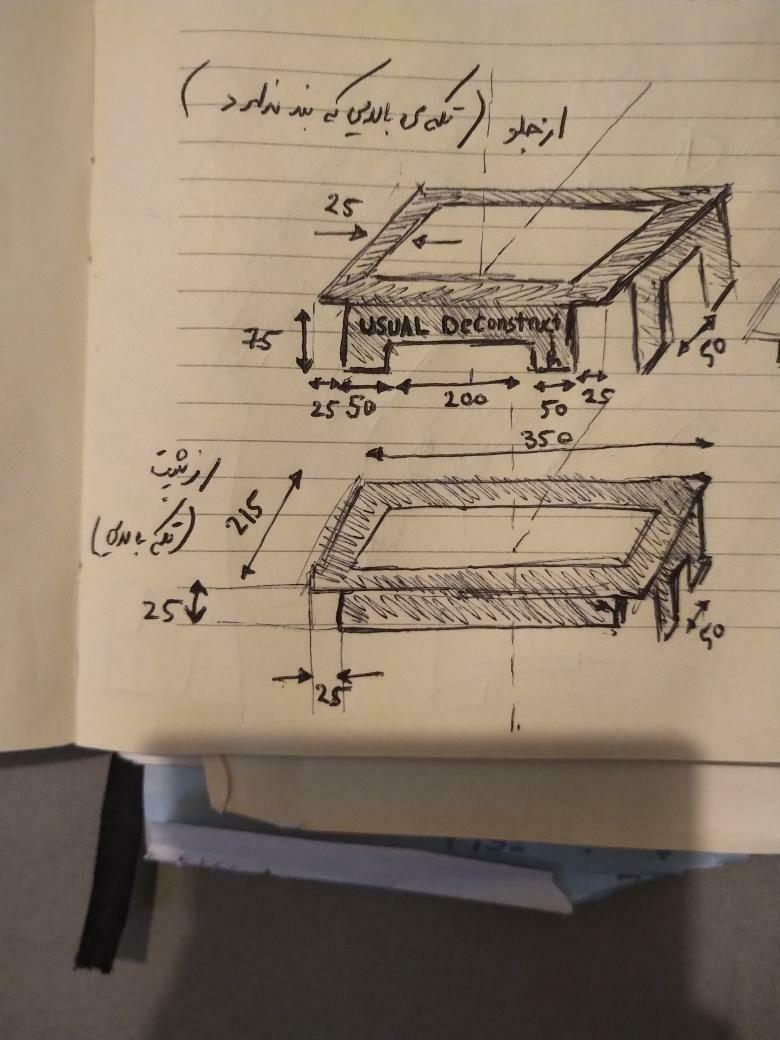 از جلو (تکه‌ی بالایی که بند ندارد)
25
75
USUAL Deconstruct
50
25 50 200 50 25
350
از پشت
(تکه بالایی)
215
25
50
25